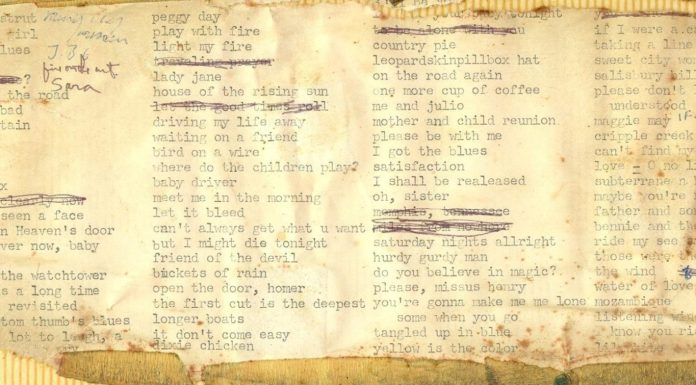 strut
girl
lues
Sara
?
the road
bad
tain
x
clearly now
seen a face
n Heaven's door
ver now, baby
the watchtower
s a long time
revisited
tom thumb's blues
lot to laugh, a
peggy day
play with fire
light my fire
traveling prayer
lady jane
house of the rising sun
let the good times roll
driving my life away
waiting on a friend
bird on a wire
where do the children play?
baby driver
meet me in the morning
let it bleed
can't always get what u want
but I might die tonight
friend of the devil
buckets of rain
open the door, homer
the first cut is the deepest
longer boats
it don't come easy
dixie chicken
tonight
to be alone with you
country pie
leopardskinpillbox hat
on the road again
one more cup of coffee
me and julio
mother and child reunion
please be with me
I got the blues
satisfaction
I shall be realeased
oh, sister
memphis, tennessee
saturday nights allright
hurdy gurdy man
do you believe in magic?
please, missus henry
you're gonna make me me lone
some when you go
tangled up in blue
yellow is the color
if I were a ca
taking a line
sweet city wo
salisbury
please don't
understood
maggie may
cripple creek
can't find my
love - 0 no l
subterranean
maybe you're
father and so
bennie and the
ride my see
those were
the wind
water of love
mozambique
listening wind
if you ri